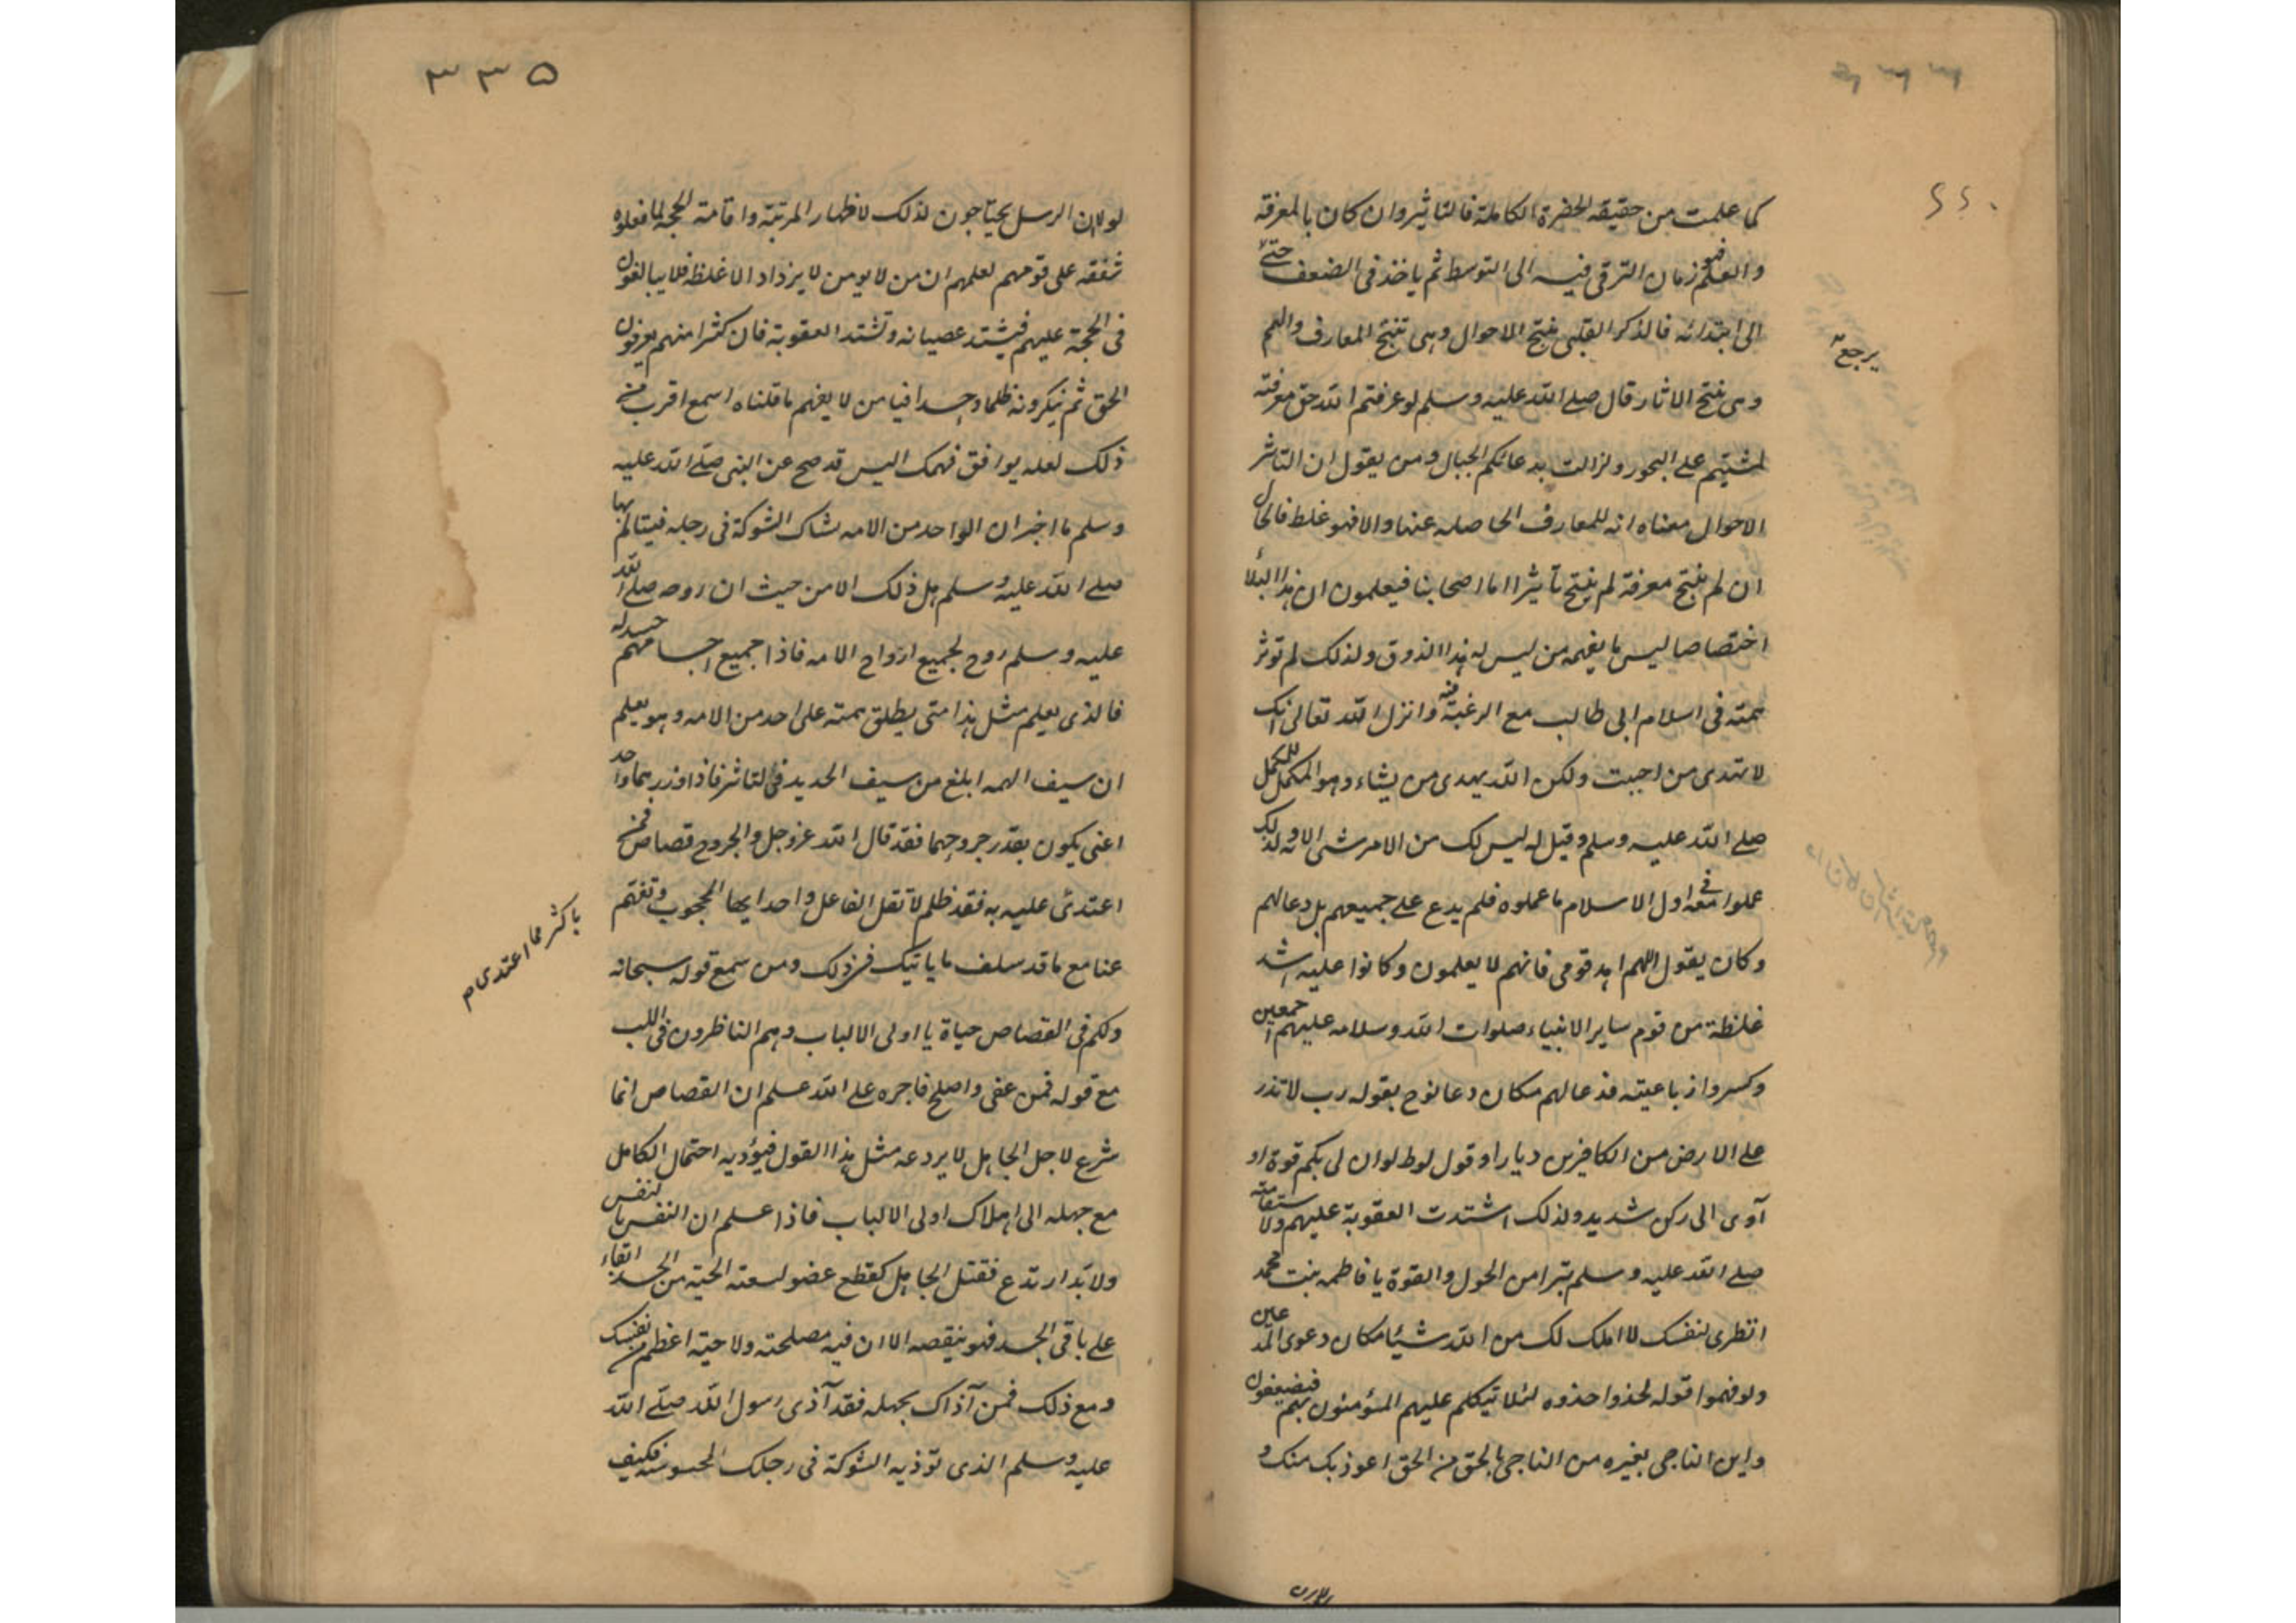 كما علمت من حقيقه الحضرة الكاملة فالتاثير وان كان بالمعرفة
والعلم فهو زمان الترقى فيه الى التوسط ثم ياخذ فى الضعف حتى
يرجع
الى ابتدائه فالذكر القلبى ينتج الاحوال وهى تنتج المعارف والعلم
وهى ينتج الاثار قال صلے الله عليه وسلم لو عرفتم الله حق معرفته
لمشيتم على البحور ولزالت بدعائكم الجبال ومن يقول ان التاثير
الاحوال معناه انه للمعارف الحاصله عنها والا فهو غلط فالحال
ان لم ينتج معرفة لم ينتج تأثيرا اما اصحابنا فيعلمون ان هذا البلأ
اختصاصا ليس ما يفهمه من ليس له هذا الذوق ولذلك لم توثر
همته فى اسلام ابى طالب مع الرغبة فيه وانزل الله تعالى انك
لا تهدى من احببت ولكن الله يهدى من يشاء وهو المكمل للكمل
صلے الله عليه وسلم وقيل له ليس لك من الامر شئ الا وله لذلك
عملوا معه فى اول الاسلام ما عملوه فلم يدع على جميعهم بل دعا لهم
وكان يقول اللهم اهد قومى فانهم لا يعلمون وكانوا عليه اشد
غلظة من قوم ساير الانبياء صلوات الله وسلامه عليهم اجمعين
وكسروا رباعيته فدعا لهم مكان دعا نوح بقوله رب لا تذر
على الارض من الكافرين ديارا وقول لوط لو ان لى بكم قوة او
آوى الى ركن شديد ولذلك اشتدت العقوبة عليهم ولاستقامته
صلے الله عليه وسلم تبرا من الحول والقوة يا فاطمه بنت محمد
انظرى لنفسك لا املك لك من الله شيئا مكان دعوى المدعين
ولو فهموا قوله لحذوا حذوه لئلا تيكلم عليهم المؤمنون بهم فيضيعفون
واين الناجى بغيره من الناجى بالحق من الحق اعوذ بك منك و
٣٣٥
لولا ان الرسل يحتاجون لذلك لاظهار المرتبة واقامة الحجة لما فعلوه
شفقه على قومهم لعلمهم ان من لا يومن لا يزداد الا غلظ فلا يبالغون
فى الحجة عليهم فيشتد عصيانه وتشتد العقوبة فان كثيرا منهم يعرفون
الحق ثم ينكرونه ظلما وجسدا فيا من لا يفهم ما قلناه اسمع اقرب من
ذلك لعله يوافق فهمك اليس قد صح عن النبى صلے الله عليه
وسلم ما اخبر ان الواحد من الامه يشاك الشوكة فى رجله فيتالم بها
صلے الله عليه وسلم هل ذلك الا من حيث ان روحه صلے الله
عليه وسلم روح لجميع ارواح الامه فاذا جميع اجسامهم جسد له
فالذى يعلم مثل هذا متى يطلق همته على احد من الامه وهو يعلم
ان سيف الهمه ابلغ من سيف الحديد فى التاثير فاذا
اعنى يكون بقدر جروحهما فقد قال الله عز وجل والجروح قصاص فمن
اعتدى عليه به فقد ظلم لا تقل الفاعل واحد ايها المحجوب وتفهم
باكثر مما اعتدى م
عنا مع ما قد سلف ما ياتيك فى ذلك ومن سمع قوله سبحانه
ولكم فى القصاص حياة يا اولى الالباب وهم الناظرون فى اللب
مع قوله فمن عفى واصلح فاجره على الله علم ان القصاص انما
شرع لاجل الجاهل لا يردعه مثل هذا القول فيؤديه احتمال الكامل
مع جهله الى اهلاك اولى الالباب فاذا علم ان النفس بالنفس
ولا بد ارتدع فقتل الجاهل كقطع عضو لسعته الحية من الجسد ابقاء
على باقى الجسد فهو ينقصه الا ان فيه مصلحته ولا حية اعظم من نفسك
ومع ذلك فمن آذاك بجهله فقد آذى رسول الله صلے الله
عليه وسلم الذى توذيه الشوكة فى رجلك المحسوسة فكيف